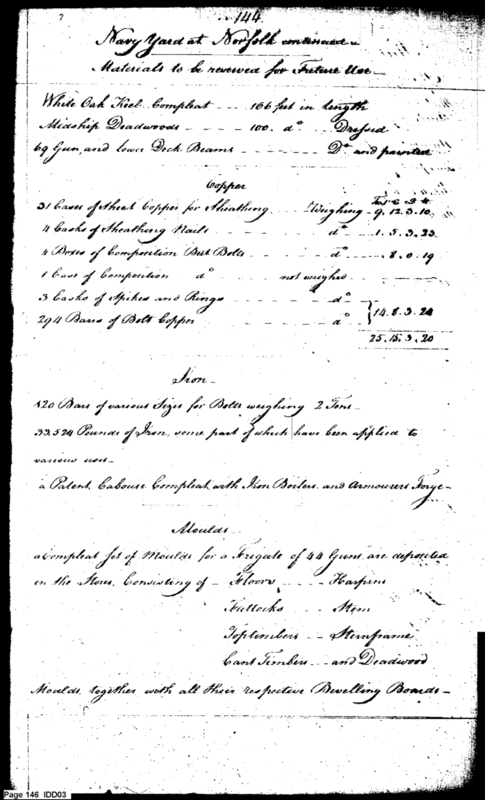 144
Navy Yard at Norfolk continued
Materials to be reserved for Future Use
White Oak Keel Compleat ---- 166 feet in length
Midship Deadwoods ---- 100. do ... Dressed
69 Gun and lower Deck Beams -------- Do and painted
Copper
31 Cases of Sheet Copper for Sheathing ... Weighing - 9. 12. 3. 10
4 Casks of Sheathing Nails -------- do ---- 1. 5. 3. 23
4 Boxes of Composition Butt Bolts -------- do ---- .8. 0. 19
1 Case of Composition do ---- not weighed
3 Casks of Spikes and Rings -------- do
294 Bars of Bolt Copper -------- do } 14. 8. 3. 24
25. 15. 3. 20
Iron
120 Bars of various Sizes for Bolts weighing 2 Tons
33,524 Pounds of Iron, some part of which have been applied to
various uses
a Patent Cabouse Compleat, with Iron Boilers and Armourers Forge
Moulds
a compleat set of Moulds for a Fregate of 44 Guns are deposited
in the Stores, Consisting of - Floors .... Harpins
Futtocks -- Stem
Toptimbers -- Sternframe
Cant Timbers .. and Deadwood
Moulds, together with all their respective Bevelling Boards
Page 146 IDD03